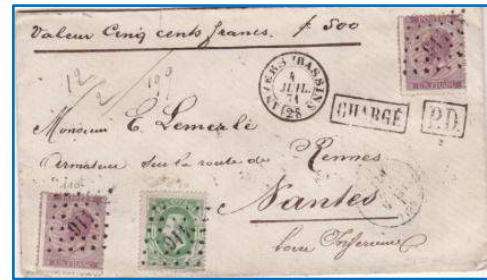 Valeur Cinq cents francs. f 500
12/2 199
ANVERS (BASSINS)
4
JUIL.
71
CHARGÉ P.D.
2
Monsieur E. Lemerle
Armateur sur la route de Rennes
Nantes
Loire Inférieure
UN FRANC
UN FRANC